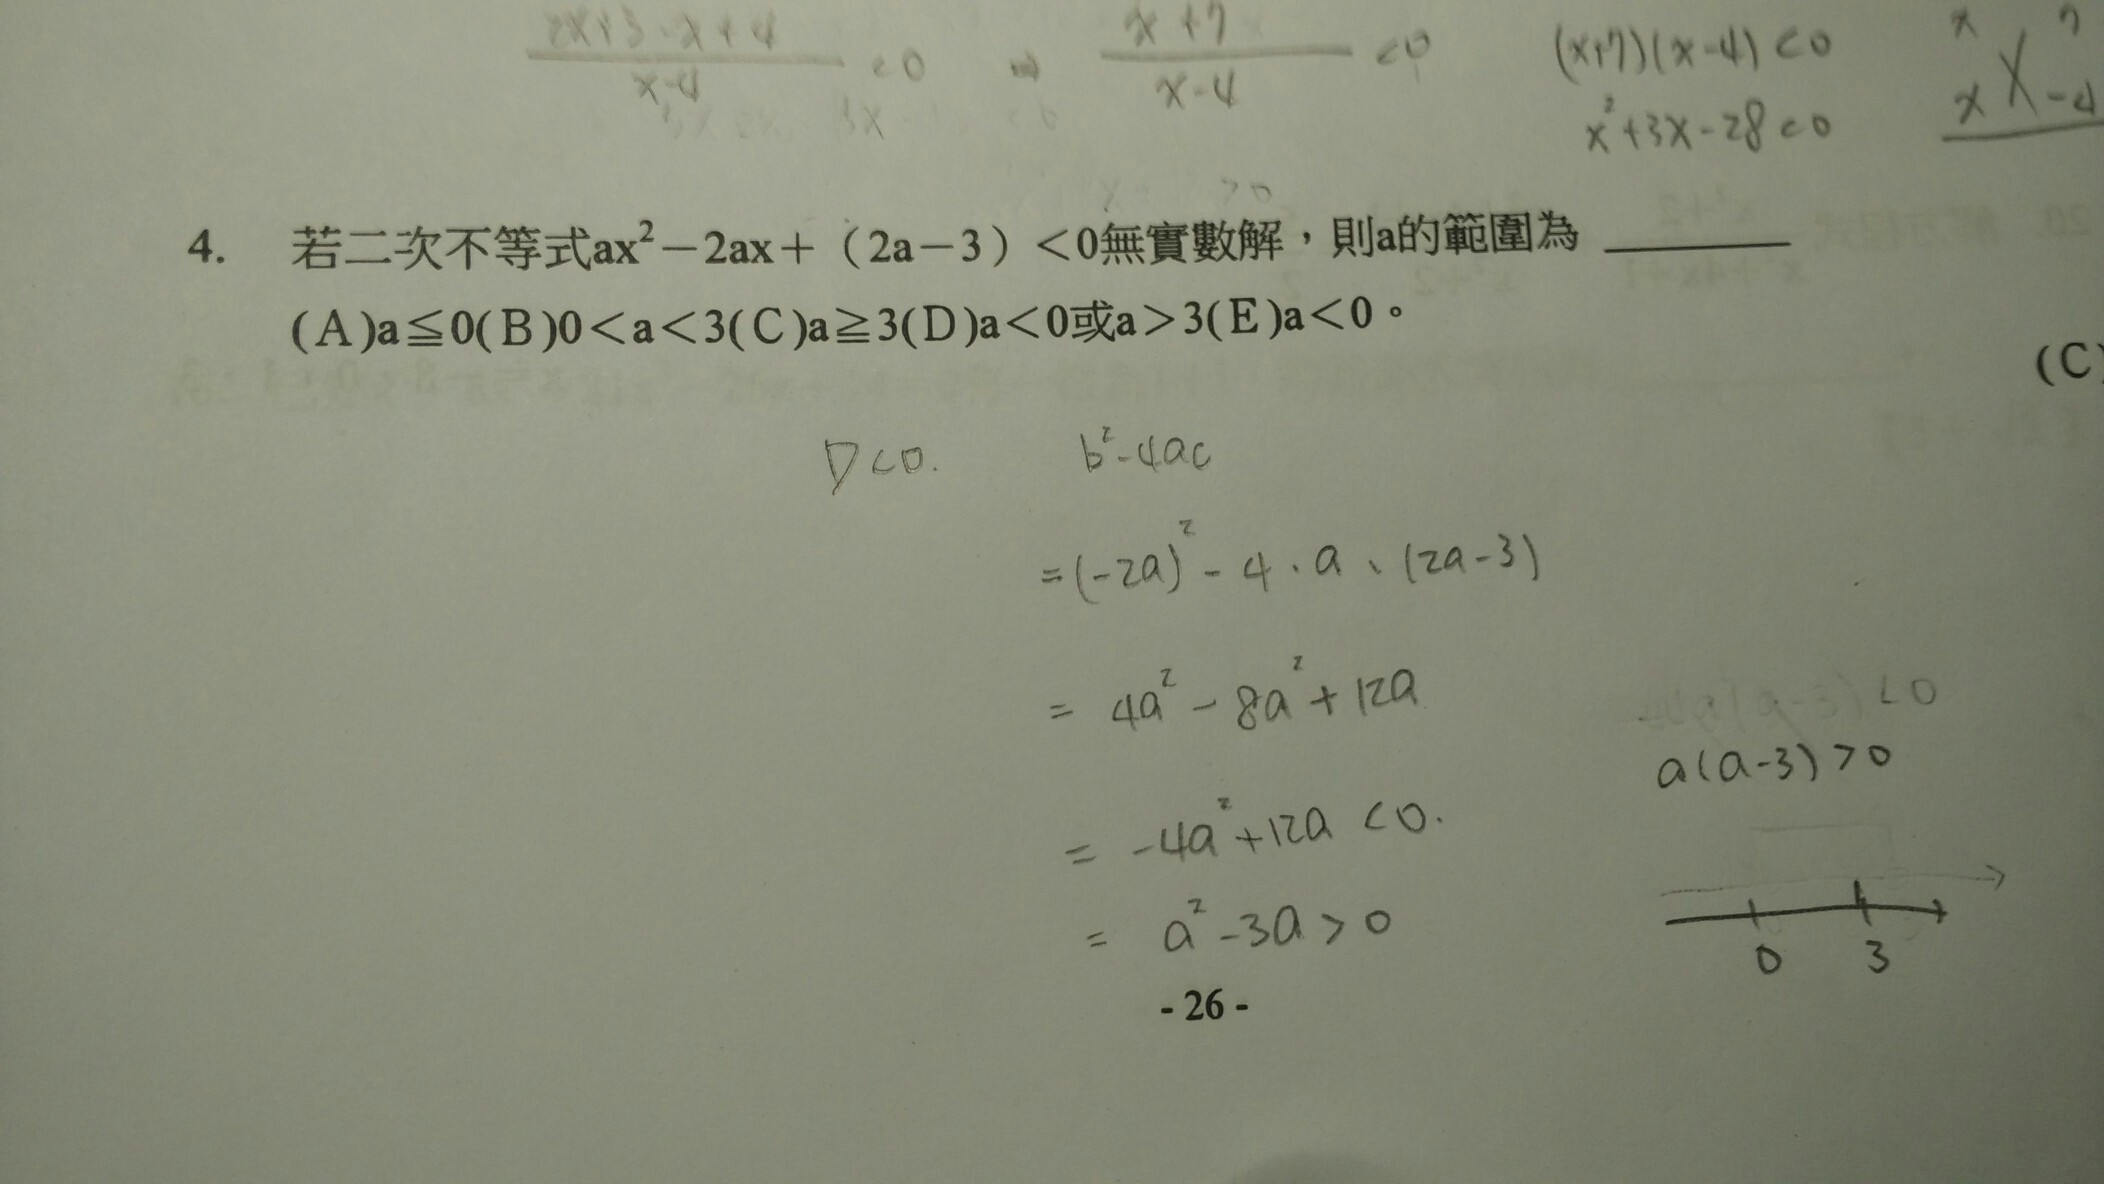 2x+3-x+4 / x-4 <0 ⇒ x+7 / x-4 <0 (x+7)(x-4)<0 x 7
x²+3x-28<0 x -4
4. 若二次不等式ax²－2ax＋（2a－3）＜0無實數解，則a的範圍為 ______
(A)a≦0(B)0＜a＜3(C)a≧3(D)a＜0或a＞3(E)a＜0。
(C)
D<0. b²-4ac
=(-2a)²-4·a、(2a-3)
= 4a²-8a²+12a
a(a-3)>0
= -4a²+12a <0.
= a²-3a>0
0 3
- 26 -